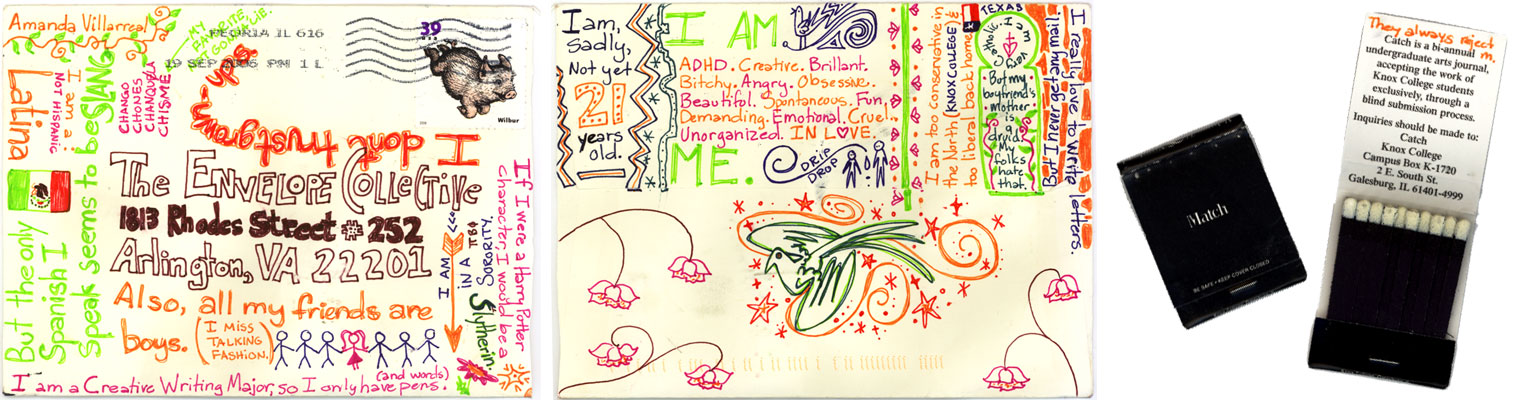 Amanda Villarreal
MY
FAVORITE,
GORGALIE.
PEORIA IL 616
19 SEP 2006 PM 1 L
39
USA
Wilbur
I am a
Latina
NOT HISPANIC
But the only
Spanish I
Speak seems to be SLANG
CHANGO
CHONES
CHANQULA
CHISME
I dont trust grown-ups
The ENVELOPE COlleCTiVE
1813 Rhodes Street # 252
Arlington, VA 22201
Also, all my friends are
boys.
(I MISS
TALKING
FASHION.)
I AM
IN A ΠΒΦ
SORORITY
<<<
If I were a Harry Potter
character, I would be a
Slytherin.
I am a Creative Writing Major, so I only have pens.
(and words)
I am,
sadly,
Not yet
21
years
old.
I AM
ADHD. Creative. Brillant.
Bitchy. Angry. Obsessive.
Beautiful. Spontaneous. Fun.
Demanding. Emotional. Cruel.
Unorganized. IN LOVE.
ME.
DRIP
DROP
I am too conservative in
the North (KNOX COLLEGE) &
too liberal back home
TEXAS
I am very
Catholic.
But my
boyfriend's
mother
is a
druid.
My
folks
hate
that.
I really love to write letters.
But I never get any mail
Match
BE SAFE • KEEP COVER CLOSED
They always reject
m.
Catch is a bi-annual
undergraduate arts journal,
accepting the work of
Knox College students
exclusively, through a
blind submission process.
Inquiries should be made to:
Catch
Knox College
Campus Box K-1720
2 E. South St.
Galesburg, IL 61401-4999